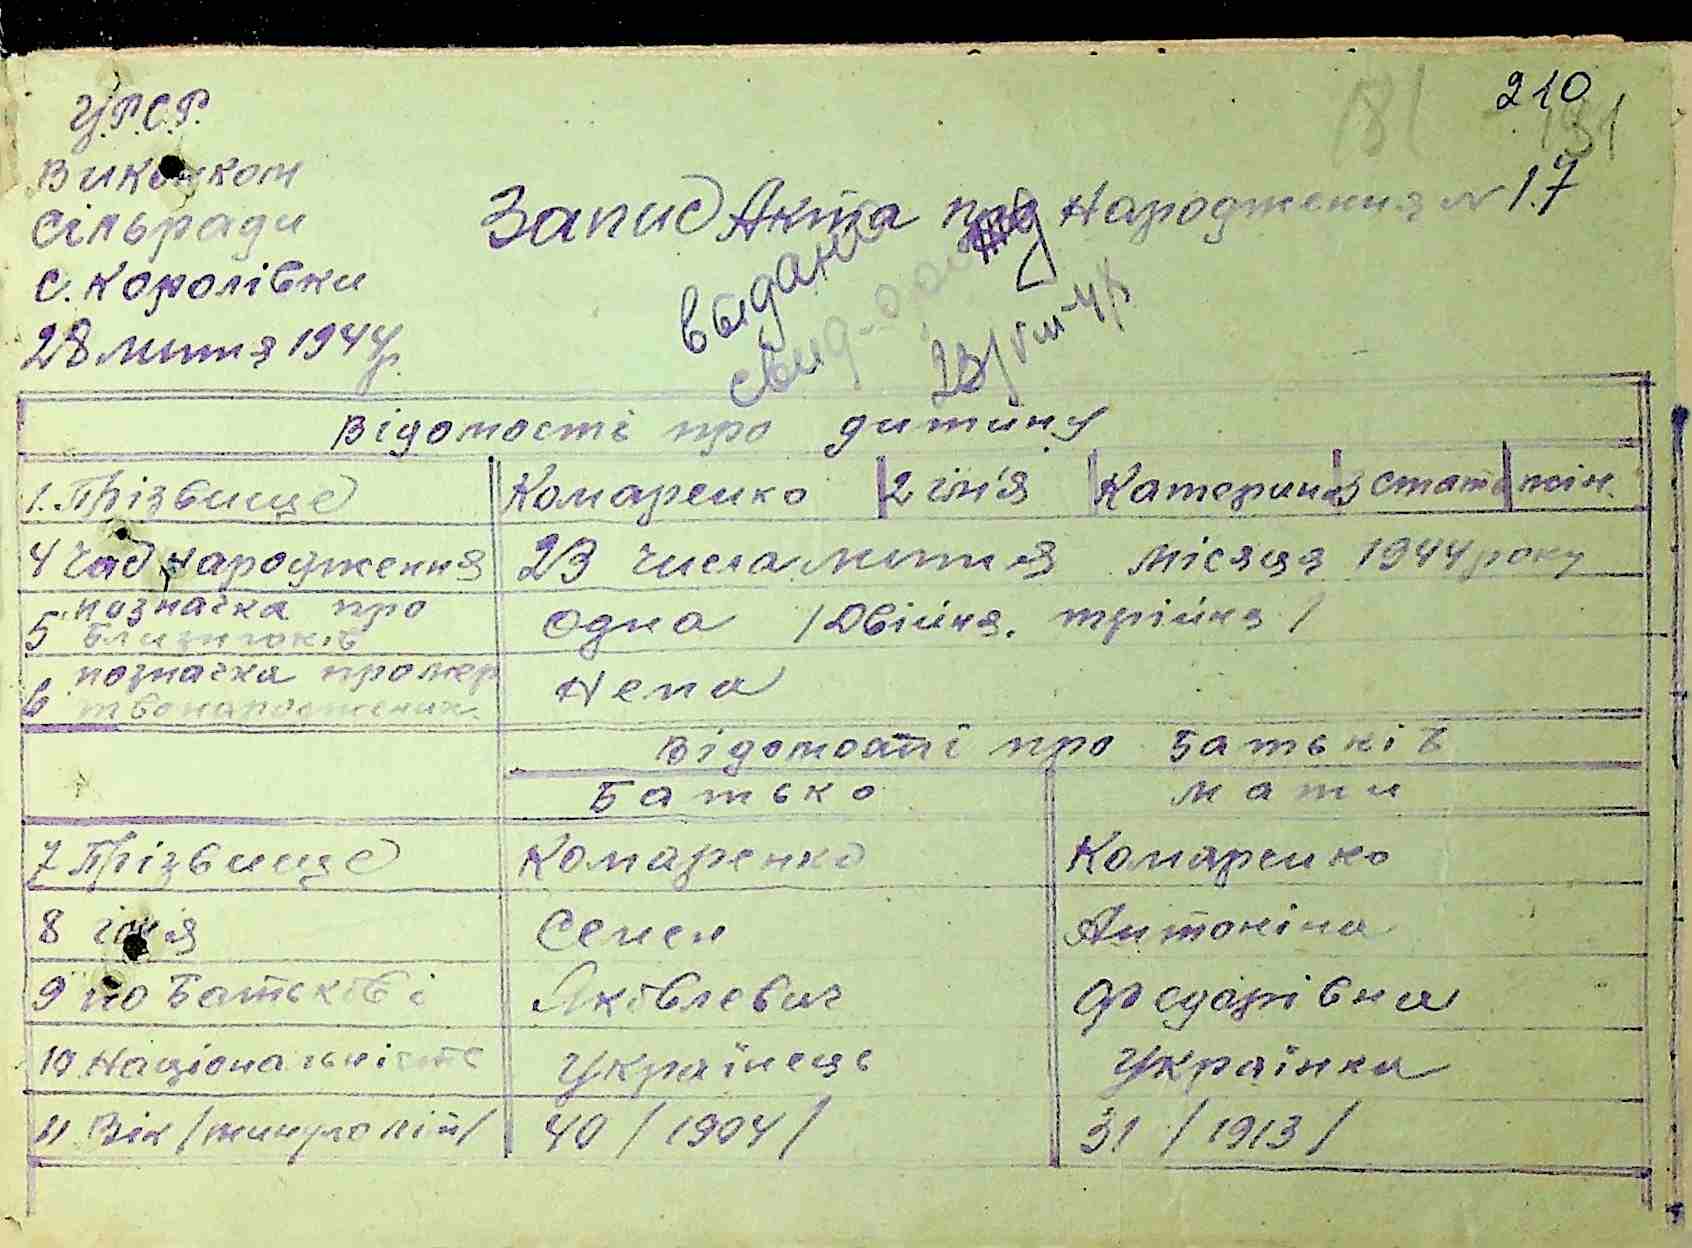 У.Р.С.Р.
210
181
191
Виконком
сільради
Запис Акта про Народження № 17
с. Королівки
28 лютня 1944р.
выдано
свид-
23/VIII-48
Відомості про дитину
1. Прізвище Комаренко 2 ім'я Катерина 3 стать жін.
4 Час народження 23 числа лютня місяця 1944 року
5 позначка про близнюків одна /Двійня, трійня/
6 позначка про мертвонароджених Нема
Відомості про Батьків
Батько мати
7 Прізвище Комаренко Комаренко
8 ім'я Семен Антоніна
9 по Батькові Яковлевич Федорівна
10 Національність Українець Українка
11 Вік /минуло літ/ 40 /1904/ 31 /1913/